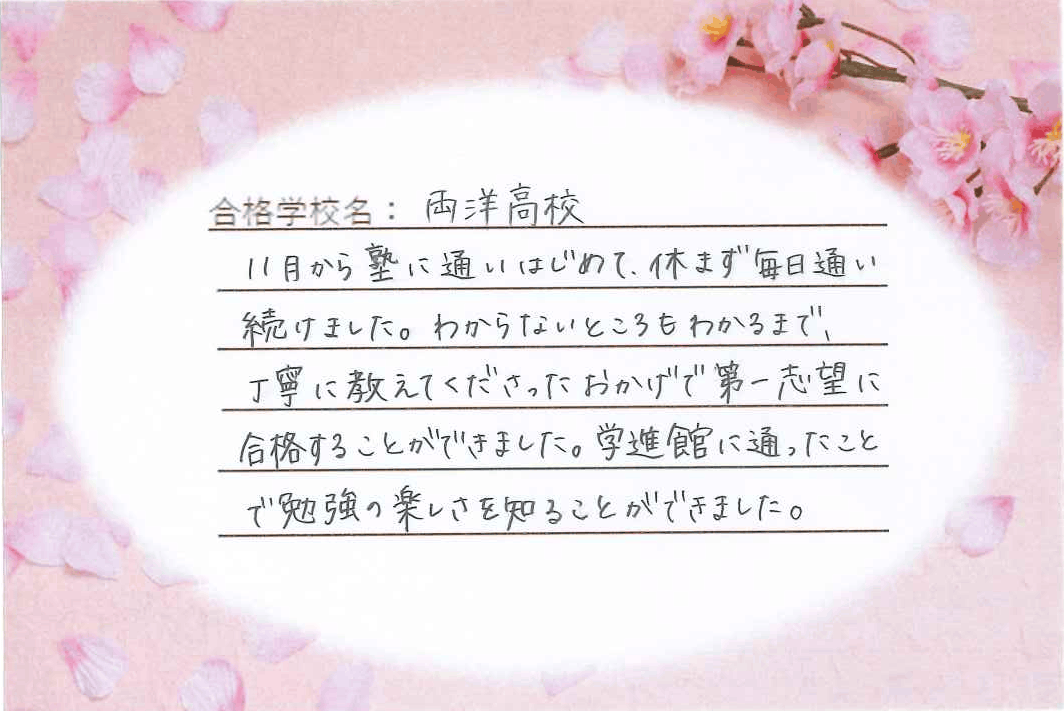 合格学校名： 両洋高校
11月から塾に通いはじめて、休まず毎日通い
続けました。わからないところもわかるまで、
丁寧に教えてくださったおかげで第一志望に
合格することができました。学進館に通ったこと
で勉強の楽しさを知ることができました。